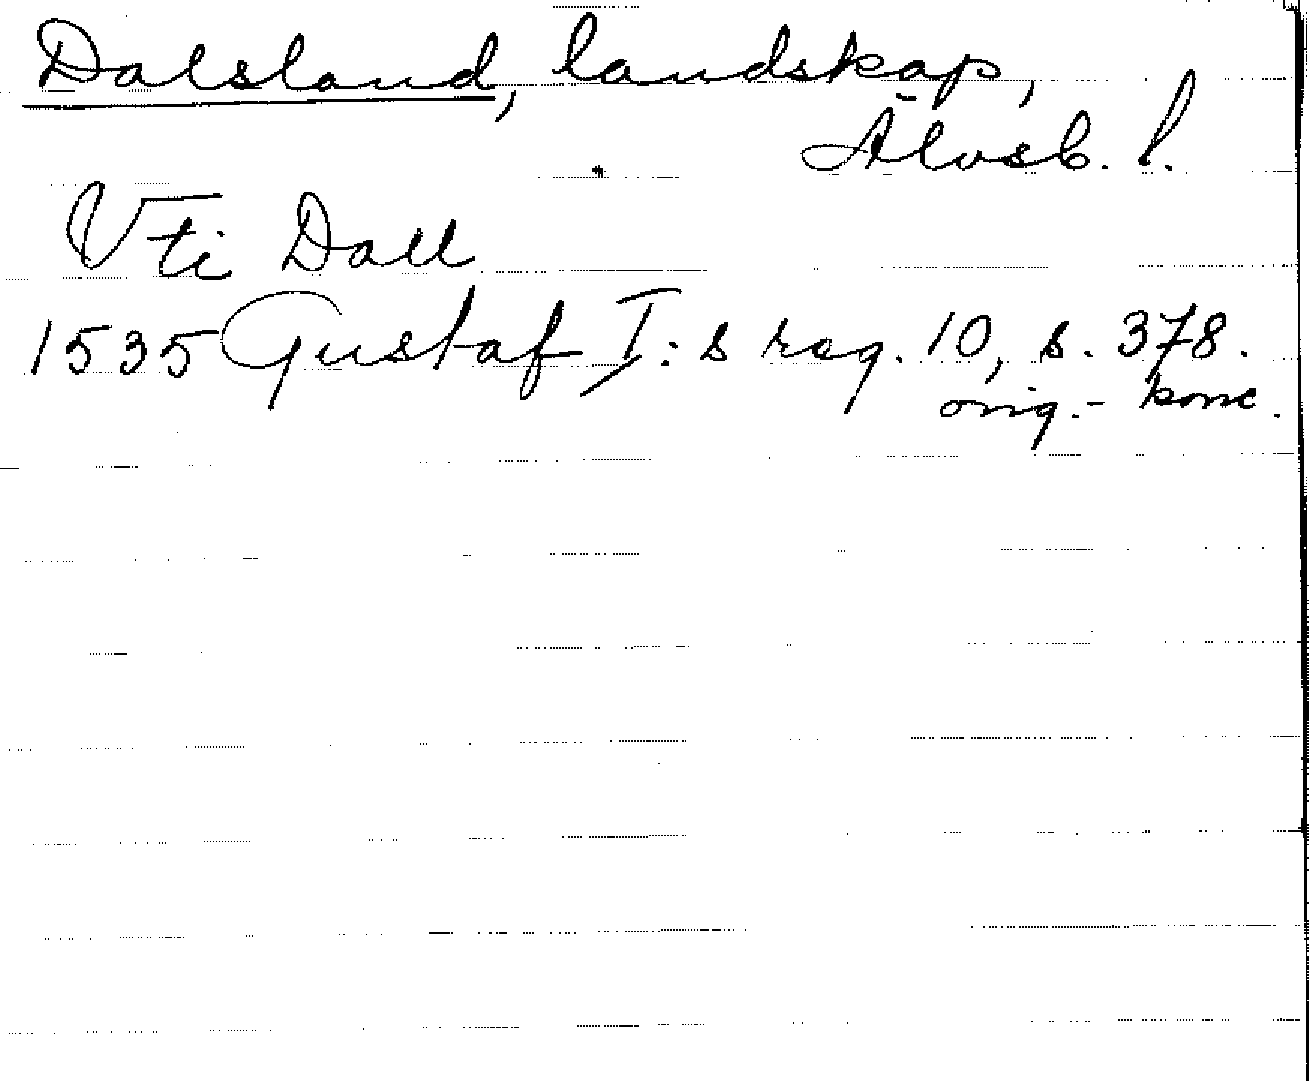 Dalsland, landskap,
Älvsb. l.
Vti Dall
1535 Gustaf I:s reg. 10, s. 378.
orig.-konc.